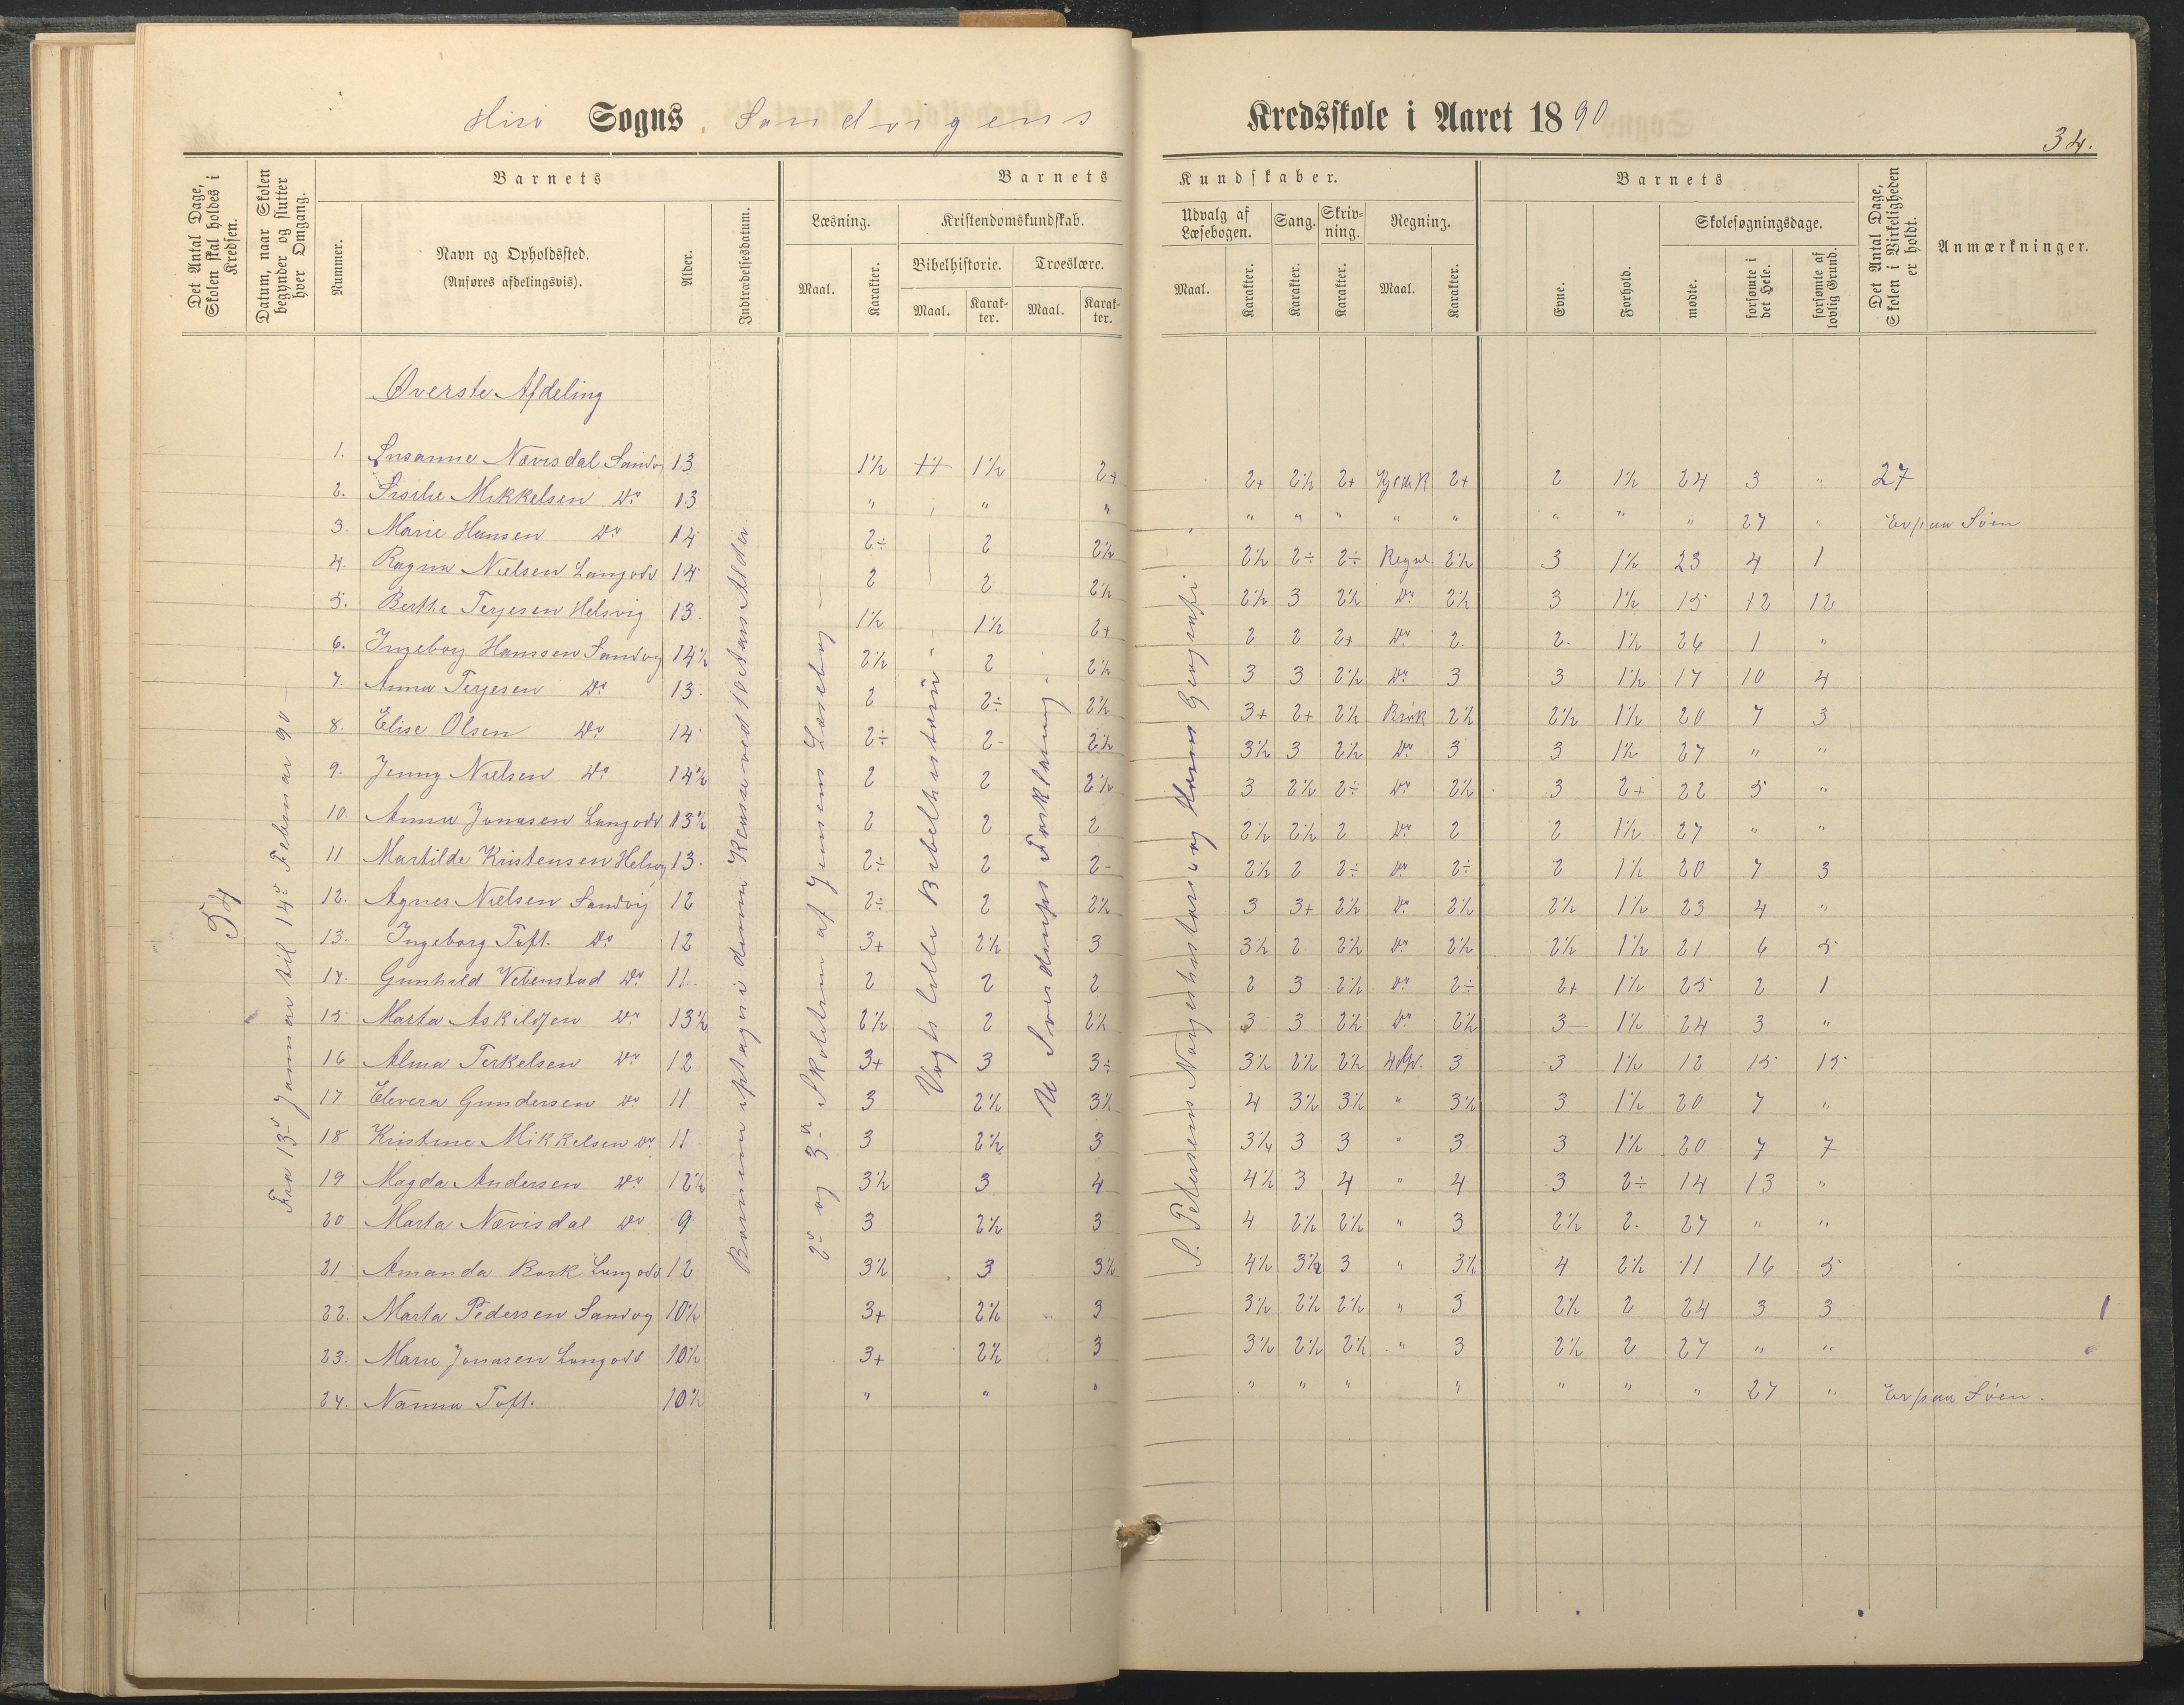 Hisø Sogns Sandvigens Kredsskole i Aaret 1890
34.
Det Antal Dage, Skolen skal holdes i Kredsen.
Datum, naar Skolen begynder og slutter hver Omgang.
Barnets
Nummer.
Navn og Opholdssted.
(Anføres afdelingsvis).
Alder.
Indtrædelsesdatum.
Barnets Kundskaber.
Læsning.
Maal.
Karakter.
Kristendomskundskab.
Bibelhistorie.
Maal.
Karakter.
Troeslære.
Maal.
Karakter.
Udvalg af Læsebogen.
Maal.
Karakter.
Sang.
Karakter.
Skrivning.
Karakter.
Regning.
Maal.
Karakter.
Barnets
Evne.
Forhold.
Skolesøgningsdage.
mødte.
forsømte i det Hele.
forsømte af lovlig Grund.
Det Antal Dage, Skolen i Virkeligheden er holdt.
Anmærkninger.
54
Fra 13de Januar til 14de Februar 90
Børnene optages i denne Klasse ved 10de Aars Alder
2den og 3die Skoletrin af Jensens Læsebog
Vogts lille Bibelhistorie
U Sverdrups Forklaring
S. Petersens Norgeshistorie og Horns Geografi
Øverste Afdeling
1. Susanne Nævisdal Sandv 13 1½ 1½ 2+ 2+ 2½ 2+ 2+ 2 1½ 24 3 " 27
2. Mikkelsen Do 13 " " " " " " " " " " " 27 " Er paa Søen
3. Marie Hansen Do 14 2÷ 2 2½ 2½ 2÷ 2÷ Regul 2½ 3 1½ 23 4 1
4. Ragna Nielsen Langods 14 2 2 2½ 2½ 3 2½ Do 2½ 3 1½ 15 12 12
5. Berthe Terjesen Helsvig 13 1½ 1½ 2+ 2 2 2+ Do 2. 2. 1½ 26 1 "
6. Ingeborg Hanssen Sandvg 14½ 2½ 2 2½ 3 3 2½ Do 3 3 1½ 17 10 4
7. Anna Terjesen Do 13. 2 2÷ 2½ 3+ 2+ 2½ Brøk 2½ 2½ 1½ 20 7 3
8. Elise Olsen Do 14 2÷ 2- 2½ 3½ 3 2½ Do 3 3 1½ 27 " "
9. Jenny Nielsen Do 14½ 2 2 2½ 3 2½ 2÷ Do 2½ 3 2+ 22 5 "
10. Anna Jonasen Langods 13½ 2 2 2 2½ 2½ 2 Do 2 2 1½ 27 " "
11 Martilde Kristensen Helsvg 13. 2÷ 2 2- 2½ 2 2÷ Do 2÷ 2 1½ 20 7 3
12. Agnes Nielsen Sandvig 12 2÷ 2 2½ 3 3+ 2½ Do 2½ 2½ 1½ 23 4 "
13. Ingeborg Toft. Do 12 3+ 2½ 3 3½ 2 2½ Do 2½ 2½ 1½ 21 6 5
14. Gunhild Vebenstad Do 11. 2 2 2 2 3 2½ Do 2÷ 2+ 1½ 25 2 1
15 Marta Askildsen Do 13½ 2½ 2 2½ 3 3 2½ Do 2½ 3— 1½ 24 3 "
16 Alma Terkelsen Do 12 3+ 3 3÷ 3½ 2½ 2½ 4 Sp. 3 3 1½ 12 15 15
17 Elevera Gundersen Do 11 3 2½ 3½ 4 3½ 3½ " 3½ 3 1½ 20 7 "
18 Kristine Mikkelsen Do 11 3 2½ 3 3½ 3 3 " 3 3 1½ 20 7 7
19 Magda Andersen Do 12½ 3½ 3 4 4½ 3 4 " 4 3 2÷ 14 13 "
20 Marta Nævisdal Do 9 3 2½ 3 4 2½ 2½ " 3 2½ 2. 27 " "
21 Amanda Bork Langods 12 3½ 3 3½ 4½ 3½ 3 " 3½ 4 2½ 11 16 5
22. Marta Pedersen Sandvg 10½ 3+ 2½ 3 3½ 2½ 2½ " 3 2½ 2 24 3 3
23. Marie Jonasen Langods 10½ 3+ 2½ 3 3½ 2½ 2½ " 3 2½ 2 27 " "
24. Nanna Toft. 10½ " " " " " " " " " " 27 " Er paa Søen.